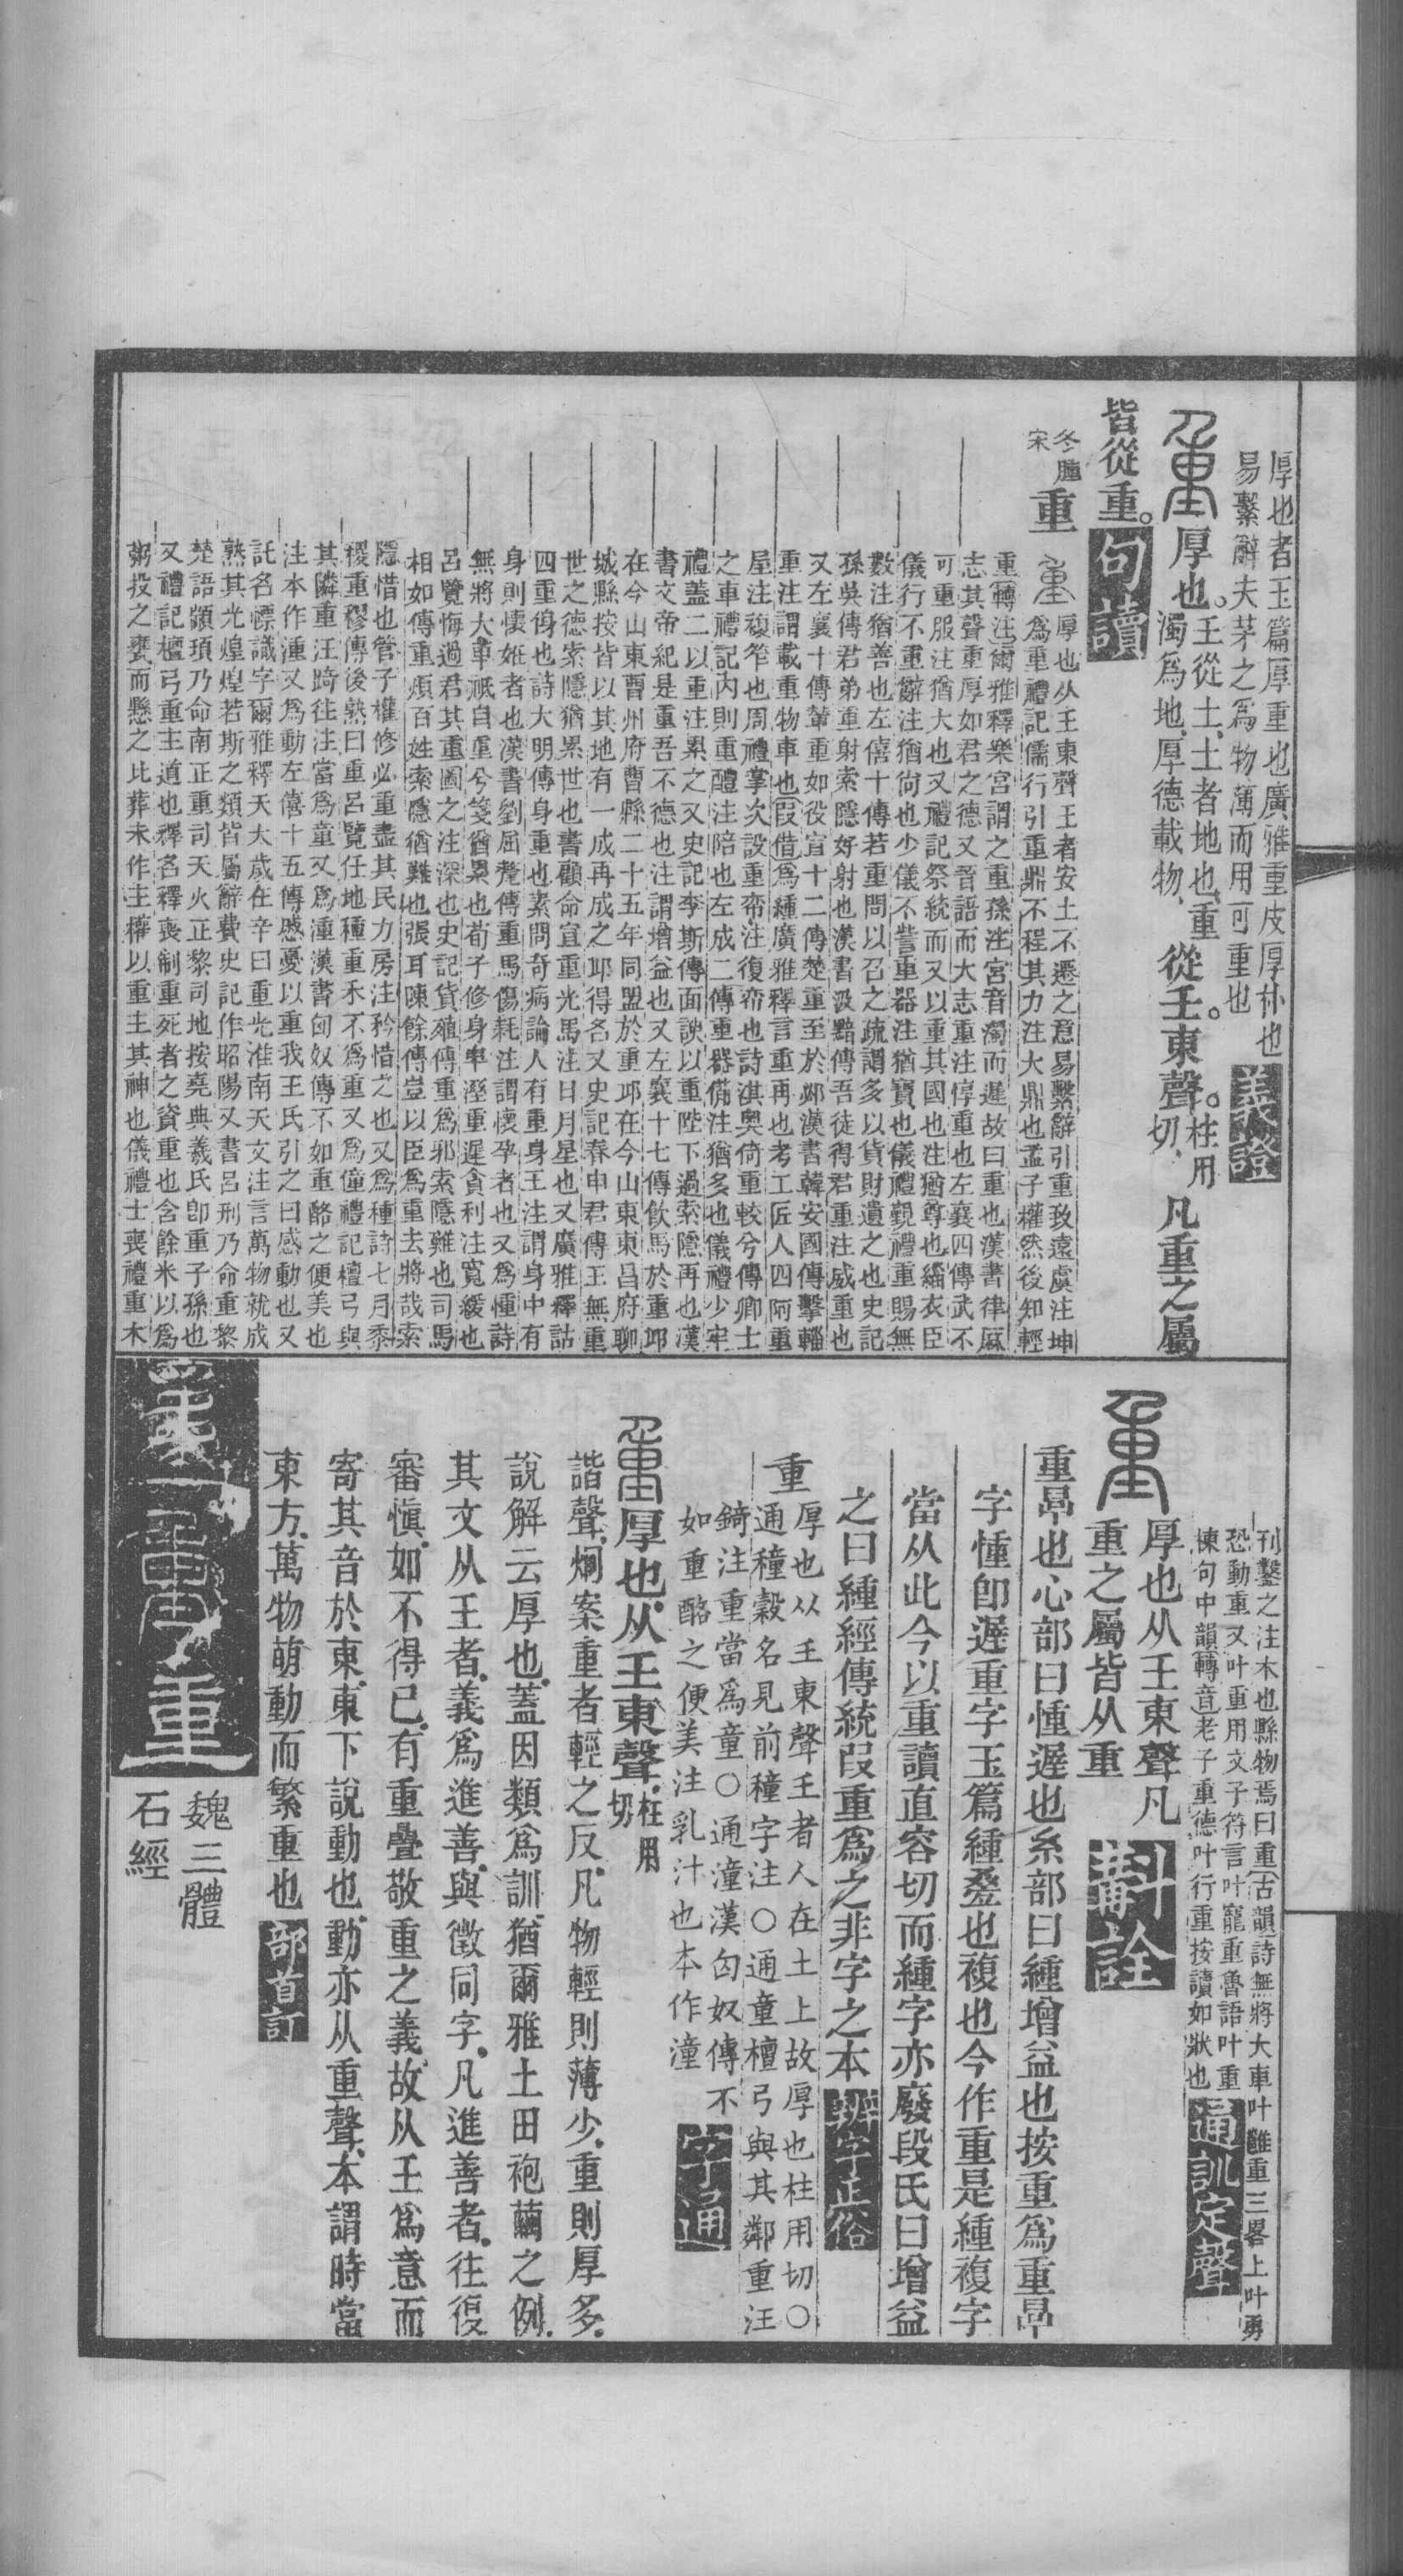 厚也者玉篇厚重也廣雅重皮厚朴也
易繫辭夫茅之爲物薄而用可重也
義證
厚也。
王從土、土者地也、重
濁爲地、厚德載物、
從壬東聲。
柱用
切、
凡重之屬
皆從重。
句讀
冬腫
宋
重
厚也从壬東聲王者安土不遷之意易繫辭引重致遠虞注坤
爲重禮記儒行引重鼎不程其力注大鼎也孟子權然後知輕
重轉注爾雅釋樂宮謂之重孫注宮音濁而遲故曰重也漢書律厤
志其聲重厚如君之德又晉語而大志重注惇重也左襄四傳武不
可重服注猶大也又禮記祭統而又以重其國也注猶尊也緇衣臣
儀行不重辭注猶尙也少儀不訾重器注猶寶也儀禮覲禮重賜無
數注猶善也左僖十傳若重問以召之疏謂多以貨財遺之也史記
孫吳傳君弟重射索隱好射也漢書汲黯傳吾徒得君重注威重也
又左襄十傳輦重如役宣十二傳楚重至於邲漢書韓安國傳擊輜
重注謂載重物車也叚借爲緟廣雅釋言重再也考工匠人四阿重
屋注複笮也周禮掌次設重帟注復帟也詩淇奧倚重較兮傳卿士
之車禮記內則重醴注陪也左成二傳重器備注猶多也儀禮少牢
禮蓋二以重注累之又史記李斯傳面諛以重陛下過索隱再也漢
書文帝紀是重吾不德也注謂增益也又左襄十七傳飮馬於重邱
在今山東曹州府曹縣二十五年同盟於重邱在今山東東昌府聊
城縣按皆以其地有一成再成之邱得名又史記春申君傳王無重
世之德索隱猶累世也書顧命宣重光馬注日月星也又廣雅釋詁
四重㑗也詩大明傳身重也素問奇病論人有重身王注謂身中有
身則懷妊者也漢書劉屈氂傳重馬傷耗注謂懷孕者也又爲㣫詩
無將大車祇自重兮箋猶累也荀子修身卑溼重遲貪利注寬緩也
呂覽悔過君其重圖之注深也史記貨殖傳重爲邪索隱難也司馬
相如傳重煩百姓索隱猶難也張耳陳餘傳豈以臣爲重去將哉索
隱惜也管子權修必重盡其民力房注矜惜之也又爲種詩七月黍
稷重穋傳後熟曰重呂覽任地種重禾不爲重又爲僮禮記檀弓與
其鄰重汪踦往注當爲童又爲湩漢書匈奴傳不如重酪之便美也
注本作湩又爲動左僖十五傳慼憂以重我王氏引之曰感動也又
託名幖識字爾雅釋天大歲在辛曰重光淮南天文注言萬物就成
熟其光煌煌若斯之類皆屬辭費史記作昭陽又書呂刑乃命重黎
楚語顓頊乃命南正重司天火正黎司地按堯典羲氏卽重子孫也
又禮記檀弓重主道也釋名釋喪制重死者之資重也含餘米以爲
粥投之甕而懸之比葬未作主權以重主其神也儀禮士喪禮重木
刊鑿之注木也縣物焉曰重古韻詩無將大車叶雝重三畧上叶勇
恐動重又叶重用文子符言叶寵重魯語叶重
棟句中韻轉音老子重德叶行重按讀如狀也
通訓定聲
厚也从壬東聲凡
重之屬皆从重
斠詮
重㬪也心部曰㣫遲也糸部曰緟增益也按重爲重㬪
字㣫卽遲重字玉篇緟疊也複也今作重是緟複字
當从此今以重讀直容切而緟字亦廢段氏曰增益
之曰緟經傳統叚重爲之非字之本
辨字正俗
重
厚也从壬東聲王者人在土上故厚也柱用切○
通穜穀名見前穜字注○通童檀弓與其鄰重汪
錡注重當爲童○通湩漢匈奴傳不
如重酪之便美注乳汁也本作湩
字通
厚也从壬東聲
柱用
切
諧聲、烱案重者輕之反、凡物輕則薄少、重則厚多、
說解云厚也、蓋因類爲訓、猶爾雅土田袍繭之例、
其文从壬者、義爲進善、與徵同字、凡進善者、往復
審愼、如不得已、有重疊敬重之義、故从壬爲意而
寄其音於東、東下說動也、動亦从重聲、本謂時當
東方、萬物萌動而繁重也
部首訂
重
魏三體
石經